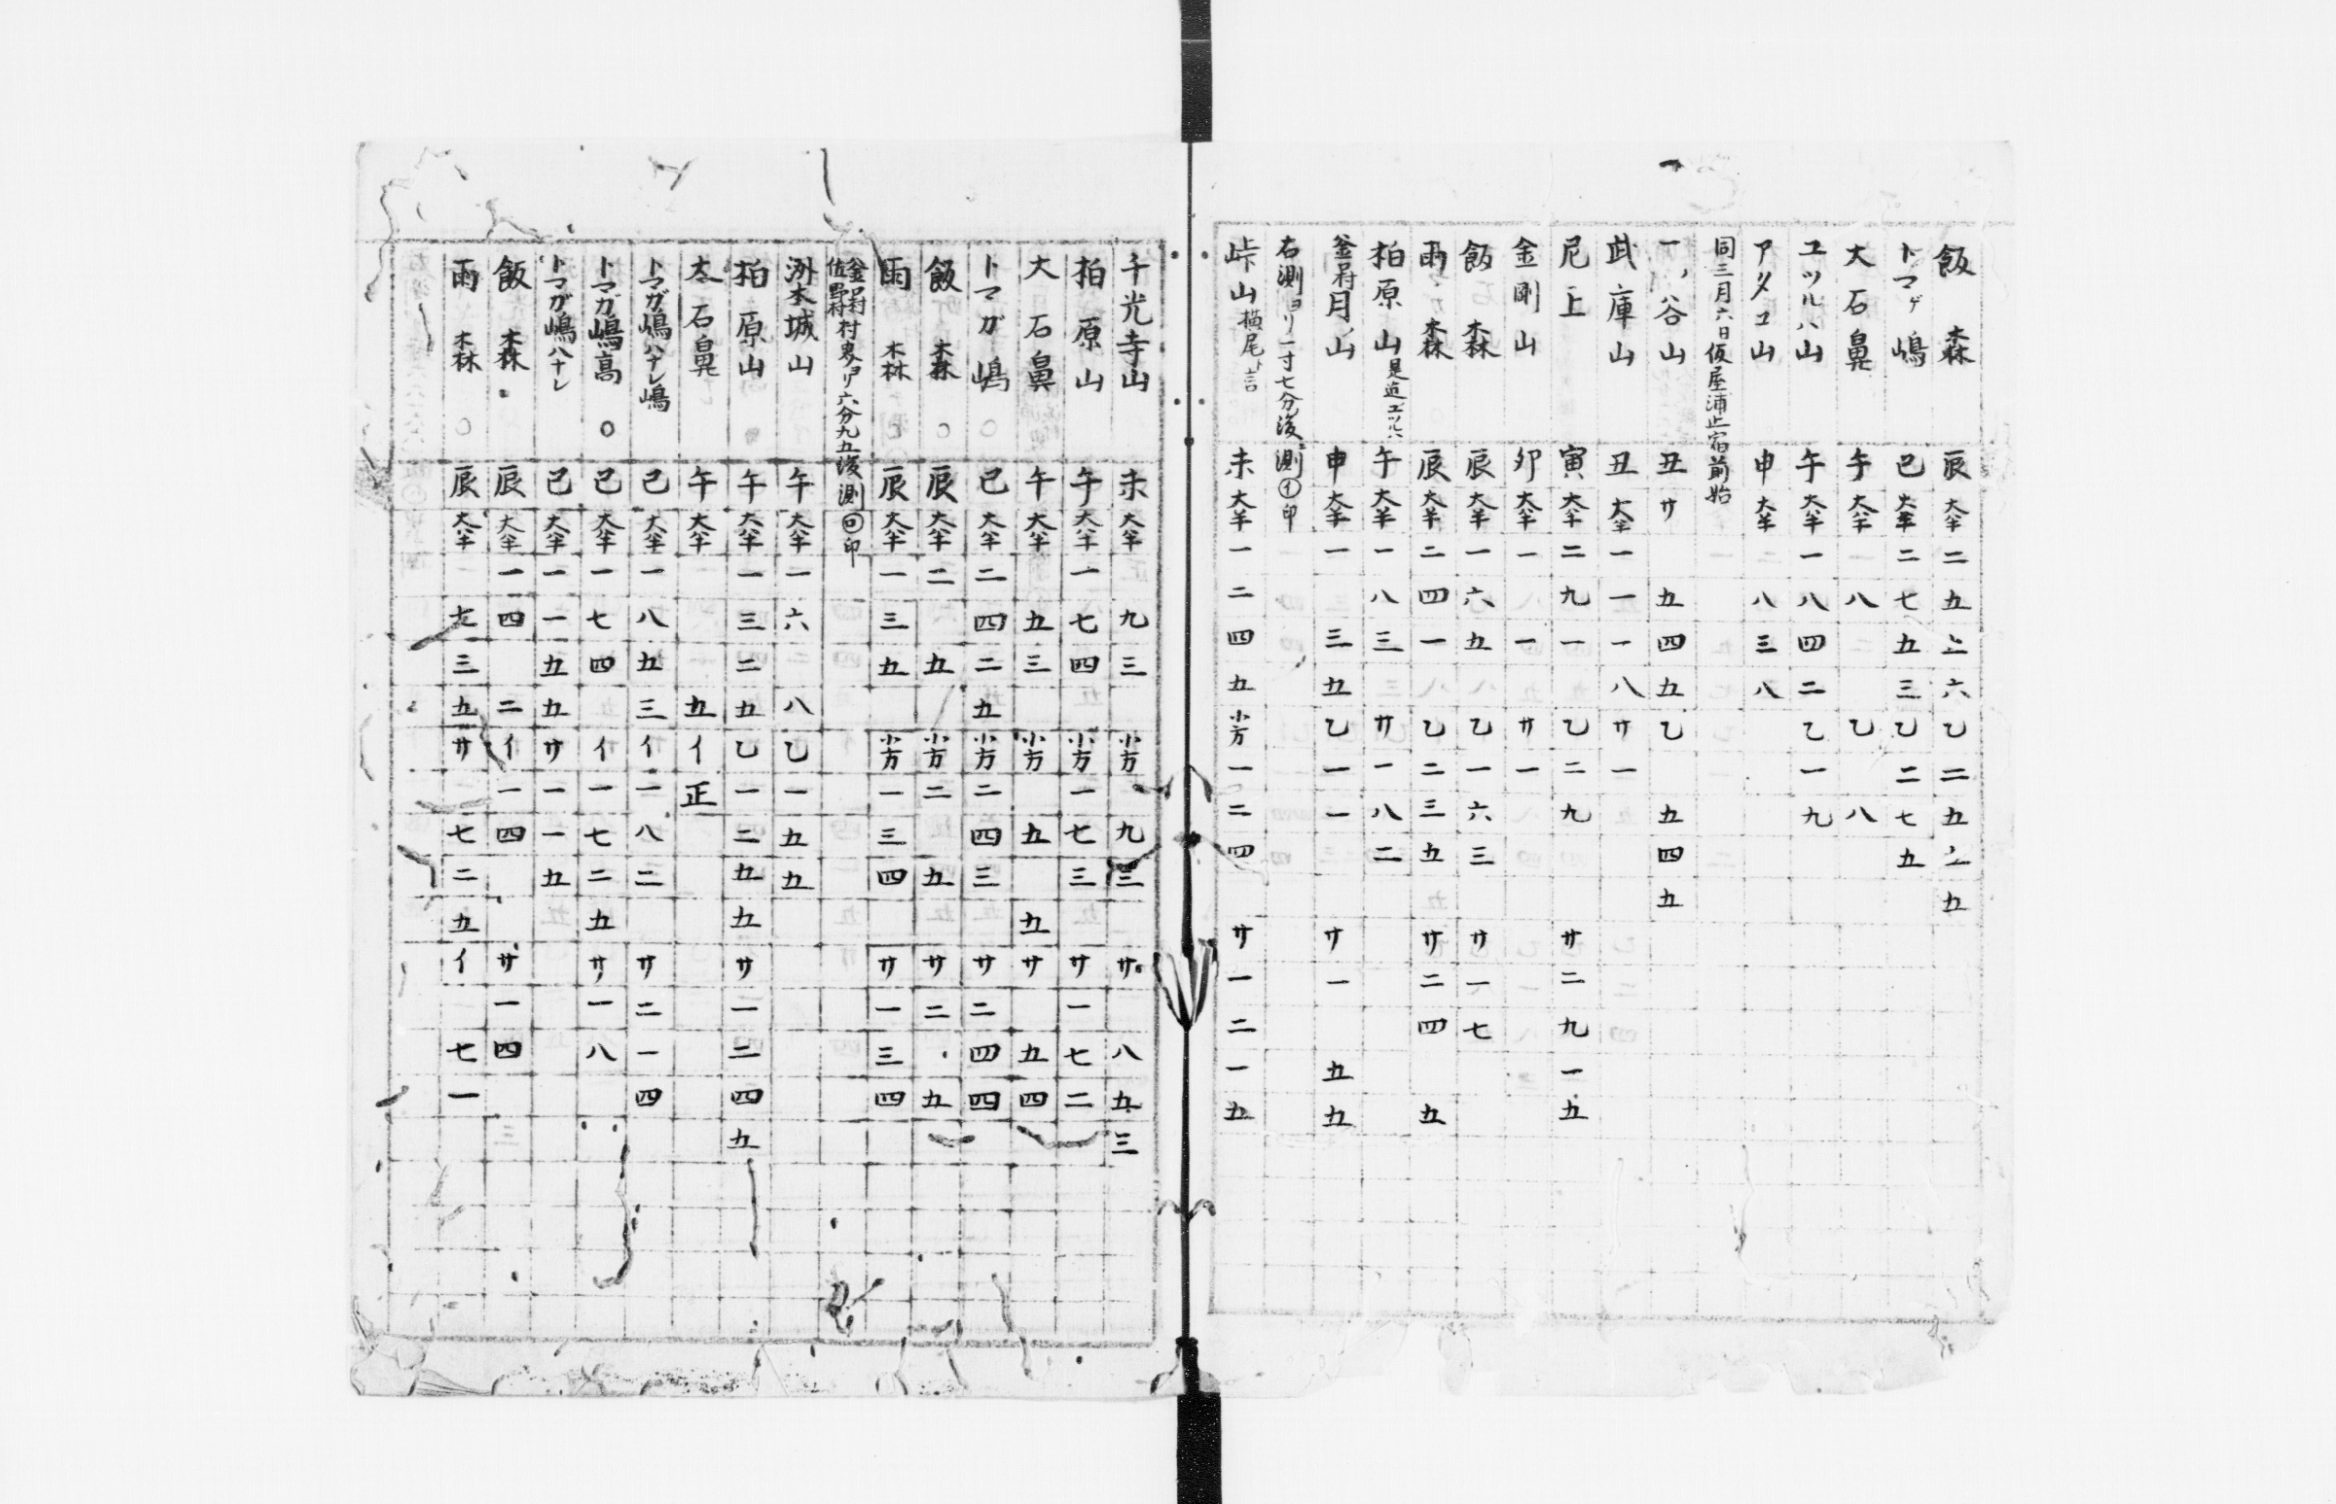 飯森 辰 大半 二五三六 乙 二五二五
トマゲ嶋 巳 大半 二七五三 乙 二七五
大石鼻 午 大半 一八 乙 八
ユツルハ山 午 大半 一八四二 乙 一九
アタコ山 申 大半 二八三八
同三月六日仮屋浦止宿前始
一ノ谷山 丑 サ 五四五 乙 五四五
武庫山 丑 大半 一一一八 サ 一
尼上 寅 大半 二九一 乙 二九 サ 二九一五
金剛山 卯 大半 一 一 サ 一
飯森 辰 大半 一六五 乙 一六三 サ 一七
雨森 辰 大半 二四一 乙 二三五 サ 二四 五
柏原山 是迄ユツルハ 午 大半 一八三 サ 一八二
釜口村月山 申 大半 一 三五 乙 一一 サ 一 五五
右測ヨリ一寸七分後測㋑印
峠山横尾ト言 未 大半 一二四五 小方 一二四 サ 一二一五
千光寺山 未 大半 九三 小方 九三 サ 八五三
柏原山 午 大半 一七四 小方 一七三 サ 一七二
大石鼻 午 大半 五三 小方 五 五 サ 五四
トマガ嶋 〇 巳 大半 二四二五 小方 二四三 サ 二四四
飯森 〇 辰 大半 二 五 小方 二 五 サ 二 五
雨森 〇 辰 大半 一三五 小方 一三四 サ 一三四
釜口村佐野村村界ヨリ六分九五後測㋺印
洲本城山 午 大半 一六 八 乙 一五五
柏原山 午 大半 一三二五 乙 一二五五 サ 一二四五
大石鼻 午 大半 五 イ 正
トマガ嶋ハナレ嶋 巳 大半 一八五三 イ 一八二 サ 二一四
トマガ嶋高 〇 巳 大半 一七四 イ 一七二五 サ 一八
トマガ嶋ハナレ 巳 大半 一一五五 サ 一一五
飯森 辰 大半 一四 二 イ 一四 サ 一四
雨森 〇 辰 大半 一七三五 サ 七二五 イ 七一